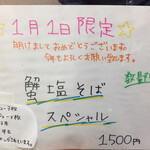 ☆1月1日限定☆
明けましておめでとうございます。
今年もよろしくお願い致します。
数量
蟹塩そば
スペシャル
1500円